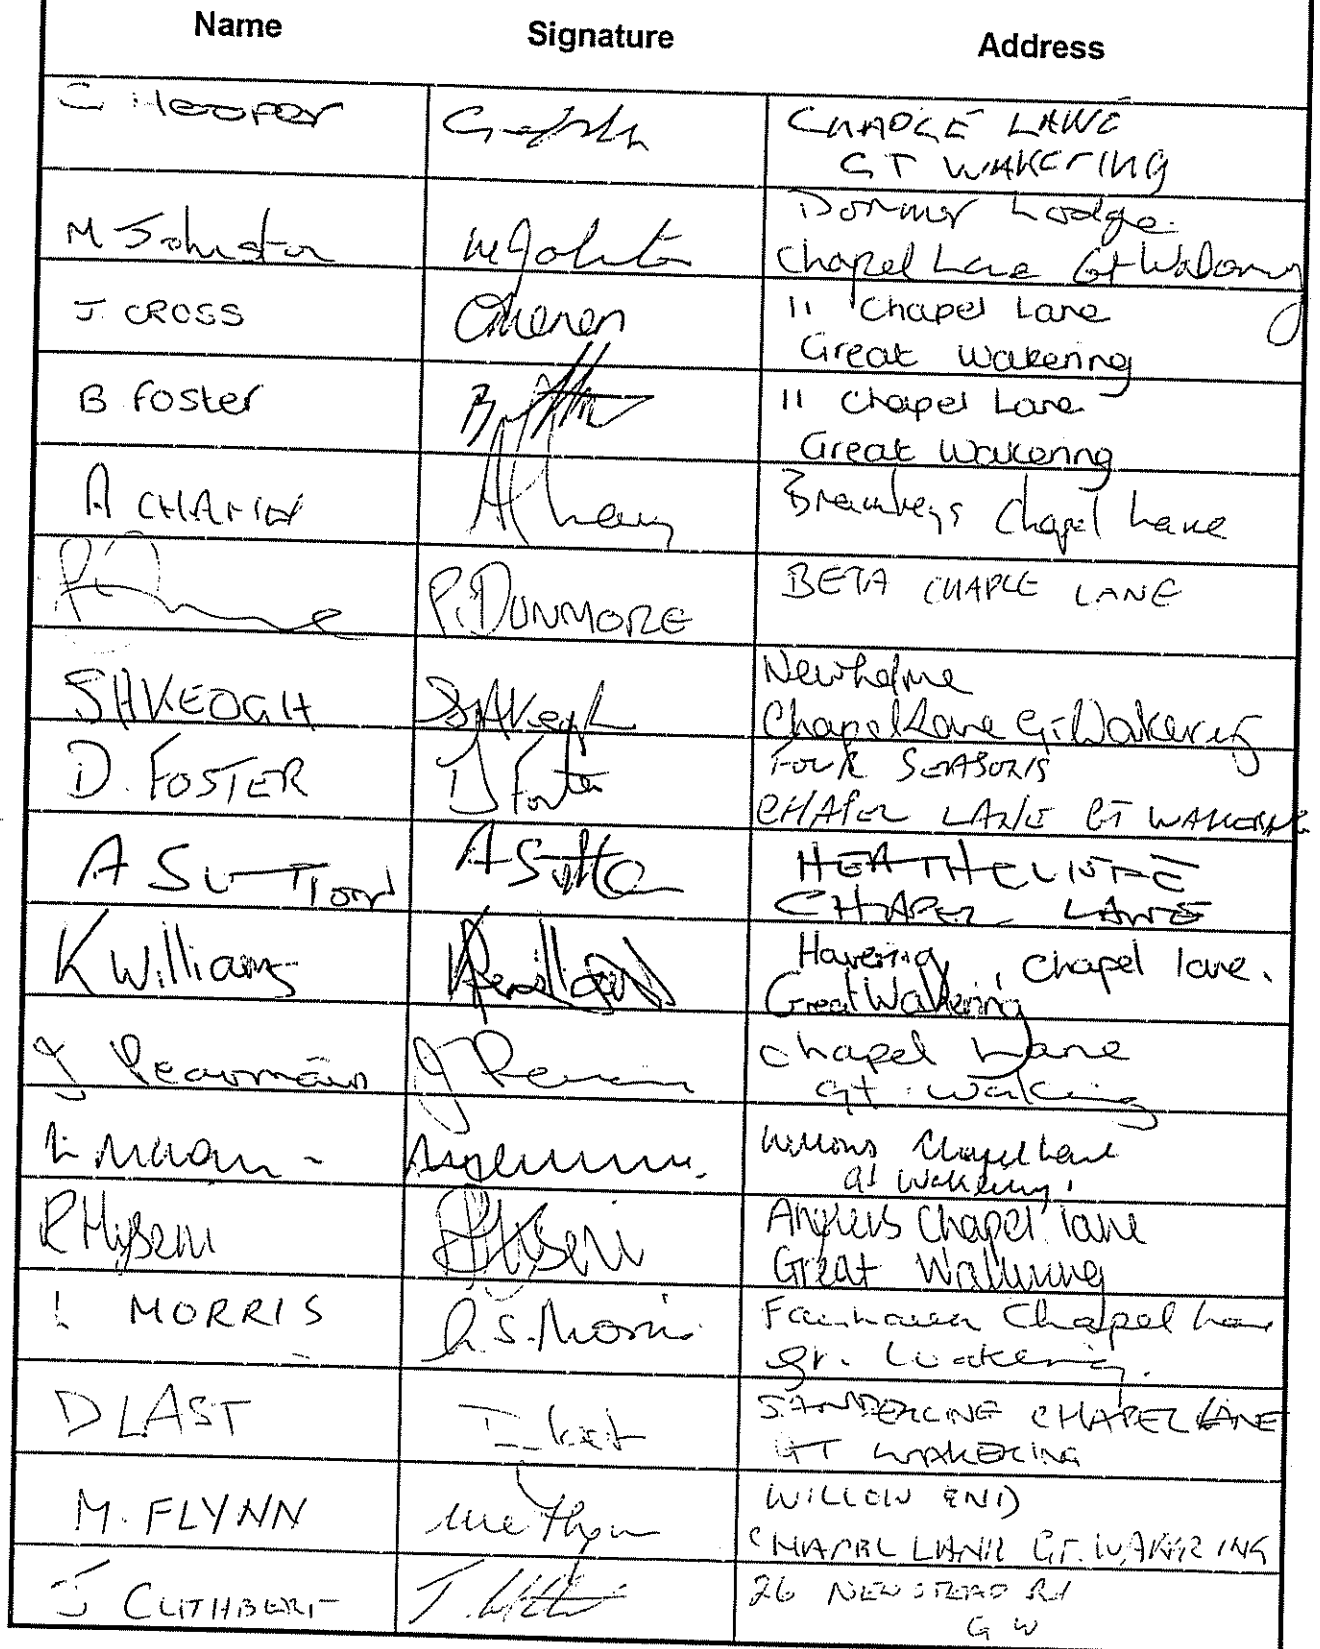 Name Signature Address
C Hooper
CHAPLE LANE
GT WAKERING
M Johnston M Johnston
Dormer Lodge.
Chapel Lane Gt Wakering
J. CROSS
11 Chapel Lane
Great Wakering
B Foster
11 Chapel Lane
Great Wakering
A
Chapel Lane
P. DUNMORE BETA CHAPLE LANE
SHKEOGH SHKeogh
Newholme
Chapel Lane Gt Wakering
D. FOSTER D Foster
FOUR SEASONS
CHAPEL LANE GT WAKERING
A SUTTON A Sutton
HEATHCLIFFE
CHAPEL LANE
K Williams
Havering, Chapel lane.
Great Wakering
J Pearmain J Pearmain
Chapel Lane
Gt. Wakering
Willows Chapel Lane
Gt Wakering
R Hyseni R Hyseni
Anglers Chapel lane
Great Wakering
L MORRIS L.S. Morris
Fairhaven Chapel Lane
Gr. Wakering.
D LAST D Last
SANDERLING CHAPEL LANE
GT WAKERING
M. FLYNN
WILLOW END
CHAPEL LANE GT. WAKERING
J CUTHBERT
26 NEWSTEAD Rd
G W